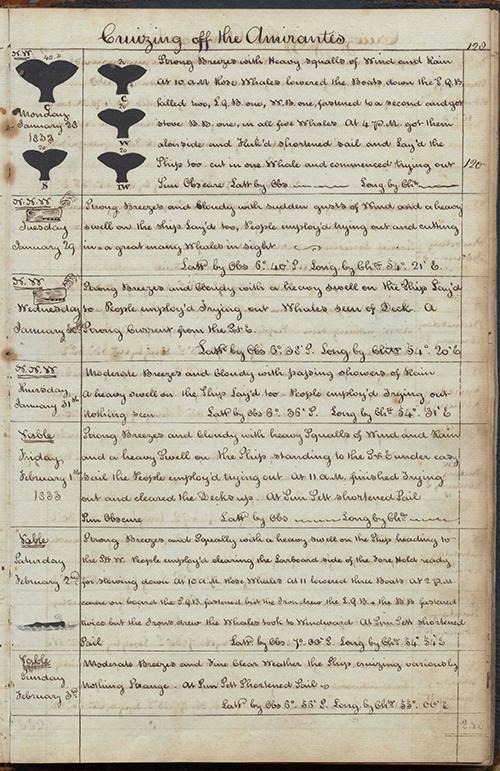 Cruizing off the Amirantes
128
N.W
40
Monday
January 28
1833
S
20
C
20
W
20
IW
Strong Breezes with Heavy Squalls of Wind and Rain
At 10 A.M Rose Whales lowered the Boats down the S.Q.B.
killed two, L.Q.B. one, W.B. one, fastened to a second and got
stove B.B. one, in all five Whales. At 4 P.M. got them
alonside and Fluk'd shortened sail and Lay'd the
Ship too. cut in one Whale and commenced trying out
Sun Obscure Latt by Obs Long by Chr
120
N.N.W
Tuesday
January 29
Strong Breezes and Cloudy with sudden gusts of Wind and a heavy
swell on the Ship Lay'd too, People employ'd trying out and cutting
in a great many Whales in sight
Latt by Obs 6°. 40' S. Long. by Chr. 54°. 21' E.
N.W
Wednesday
January 30th
Strong Breezes and Cloudy with a heavy swell on the Ship Lay'd
to People employ'd Trying out Whales seen of Deck. A
Strong Current from the
Latt by Obs 6°. 38' S. Long by Chr 54°. 20' E
N.N.W
Thursday
January 31st
Moderate Breezes and Cloudy with passing showers of Rain
A heavy swell on the Ship Lay'd too People employ'd Trying out
Nothing seen Latt by Obs 6°. 36' S. Long by Chr. 54°. 31' E
Vable
Friday
February 1st
1833
Strong Breezes and Cloudy with heavy Squalls of Wind and Rain
and a heavy Swell on the Ship standing to the under easy
Sail the People employ'd trying out At 11 A.M. finished Trying
out and cleared the Decks up. At Sun Sett shortened Sail
Sun Obscure Latt by Obs Long by Chr.
Vable
Saturday
February 2nd
Strong Breezes and Squally with a heavy swell on the Ship heading to
the W. People employ'd clearing the Larboard side of the Fore Hold ready
for stowing down At 10 A.M. Rose Whales At 11 lowered three Boats At 2 P.M.
came on board the S.Q.B. fastened but the Iron drew the L.Q.B. & the B.B. fastened
twice but the Irons drew the Whales took to Windward At Sun Sett shortened
Sail Latt by Obs. 7°. 00' S. Long by Chr. 54°. 54' E
Vable
Sunday
February 3rd
Moderate Breezes and Fine Clear Weather the Ship cruizing variously
Nothing Strange. At Sun Sett Shortened Sail
Latt by Obs 6°. 56' S. Long. by Chr. 55°. 00' E